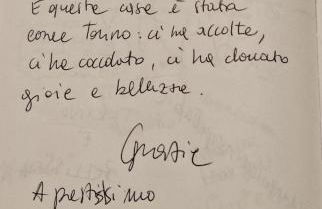 E queste cose è stata
come Tonno: ci ha accolte,
ci ha coccolato, ci ha donato
gioie e bellezze.
Grazie
A prestissimo